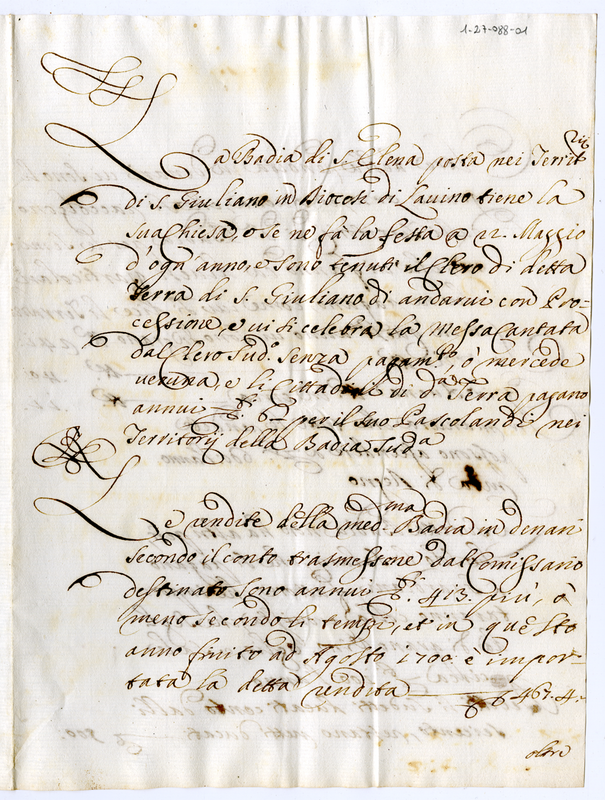 1-27-088-01
La Badia di S. Elena posta nei Territ.rio
di S. Giuliano in Diocesi di Lavino tiene la
sua Chiesa, o se ne fà la festa a 22. Maggio
d'ogn'anno, e sono tenuti il Clero di detta
Terra di S. Giuliano di andarvi con Pro-
cessione, e vi si celebra la messa Cantata
dal Clero sud.o senza pagam.to, ò mercede
veruna, e li Cittadini di d.a Terra pagano
annui 6 per il suo Pascolandi nei
Territorij della Badia Sud.a
Le rendite della med.ma Badia in denari
secondo il conto trasmessone dal Comissario
destinato sono annui 413. più, ò
meno secondo li tempi, et in questo
anno finito ad Agosto 1700 è impor-
tata la detta rendita 467.4.
oltre